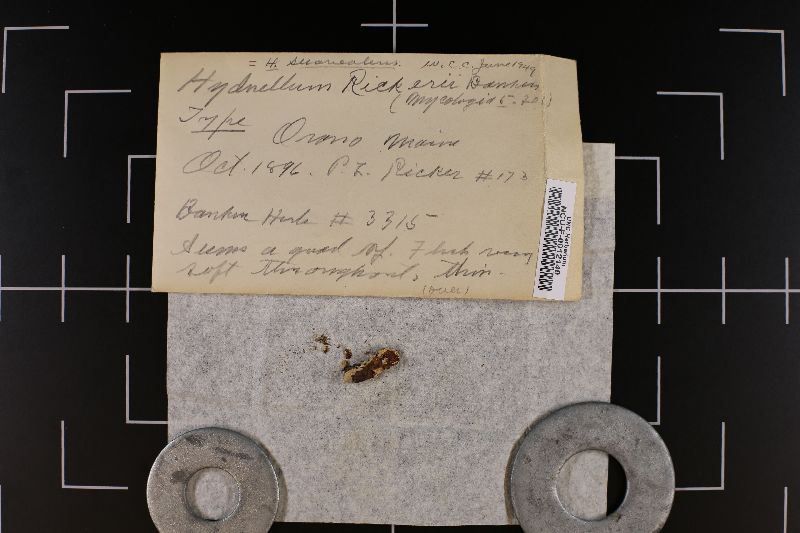 = H. suaveolens. W.C.C. June 1949
Hydnellum Rickerii Banker
(Mycologia 5:
Type Orono Maine
Oct. 1896. P.L. Ricker #173
Banker Herb # 3315
Seems a good sp. Flesh very
soft throughout, thin.
(over)
UNC Herbarium
NCU-F-0012148